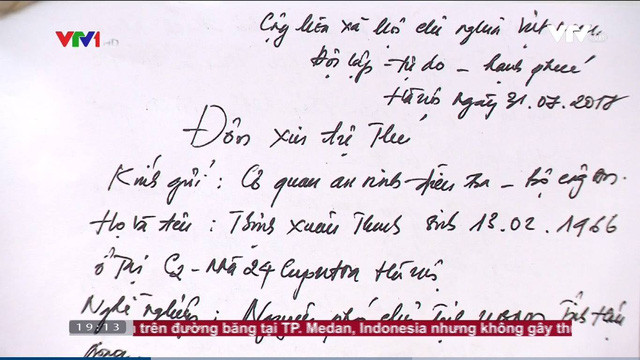 VTV1
Cộng hòa xã hội chủ nghĩa Việt Nam
Độc lập - tự do - hạnh phúc
Hà nội ngày 31.07.2017
Đơn xin tự thú
Kính gửi: Cơ quan an ninh điều tra - Bộ công an.
Họ và tên: Trịnh Xuân Thanh sinh 13.02.1966
ở tại C2 - Nhà 24 Ciputra Hà nội
Nghề nghiệp: Nguyên phó chủ tịch UBND Tỉnh Hậu
Giang
19:13 trên đường băng tại TP. Medan, Indonesia nhưng không gây th